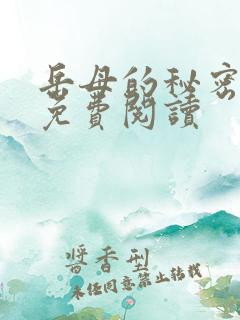 岳母的秘密
免費閱讀
醬香型
未任同意禁止转载